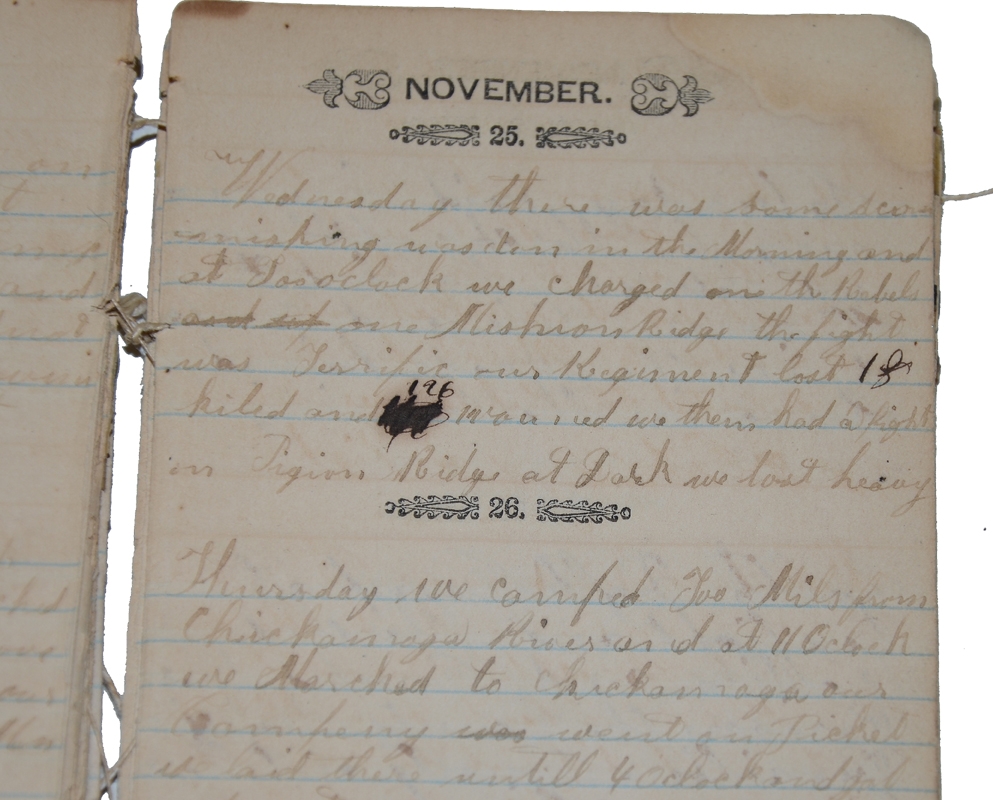 NOVEMBER.
25.
Wednesday there was some scur
mishing was don in the Morning and
at Too oclock we charged on th Rebels
and up one Mishion Ridge the fight
was Terrific our Regiment lost 18
196
kiled and wouned we them had a fight
in Pigion Ridge at Dark we lost heavy
26.
Thursday we camped Too Mils from
Chickamoga River and at 11 Oclock
we Marched to Chickamoga our
Company was went on Picket
laid there untill 4 Oclock and